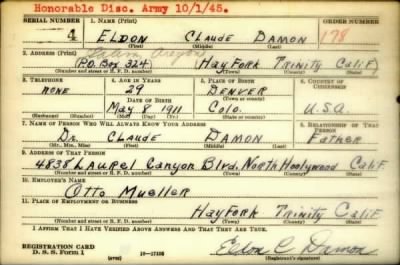 Honorable Disc. Army 10/1/45.
SERIAL NUMBER 1. NAME (Print) ORDER NUMBER
4 ELDON CLAUDE DAMON 178
(First) (Middle) (Last)
2. ADDRESS (Print)
(P.O. Box 324) HAYFORK TRINITY CALIF
(Number and street or R. F. D. number) (Town) (County) (State)
3. TELEPHONE 4. AGE IN YEARS 5. PLACE OF BIRTH 6. COUNTRY OF CITIZENSHIP
NONE 29 DENVER
DATE OF BIRTH (Town or county)
May 8 1911 Colo. U.S.A.
(Mo.) (Day) (Yr.) (State or country)
7. NAME OF PERSON WHO WILL ALWAYS KNOW YOUR ADDRESS 8. RELATIONSHIP OF THAT PERSON
Dr. CLAUDE DAMON Father
(Mr., Mrs., Miss) (First) (Middle) (Last)
9. ADDRESS OF THAT PERSON
4838 Laurel Canyon Blvd. North Hoolywood Calif
(Number and street or R. F. D. number) (Town) (County) (State)
10. EMPLOYER'S NAME
Otto Mueller
11. PLACE OF EMPLOYMENT OR BUSINESS
HayFork Trinity Calif.
(Number and street or R. F. D. number) (Town) (County) (State)
I AFFIRM THAT I HAVE VERIFIED ABOVE ANSWERS AND THAT THEY ARE TRUE.
REGISTRATION CARD
D. S. S. Form 1 Eldon C Damon
(Registrant's signature)